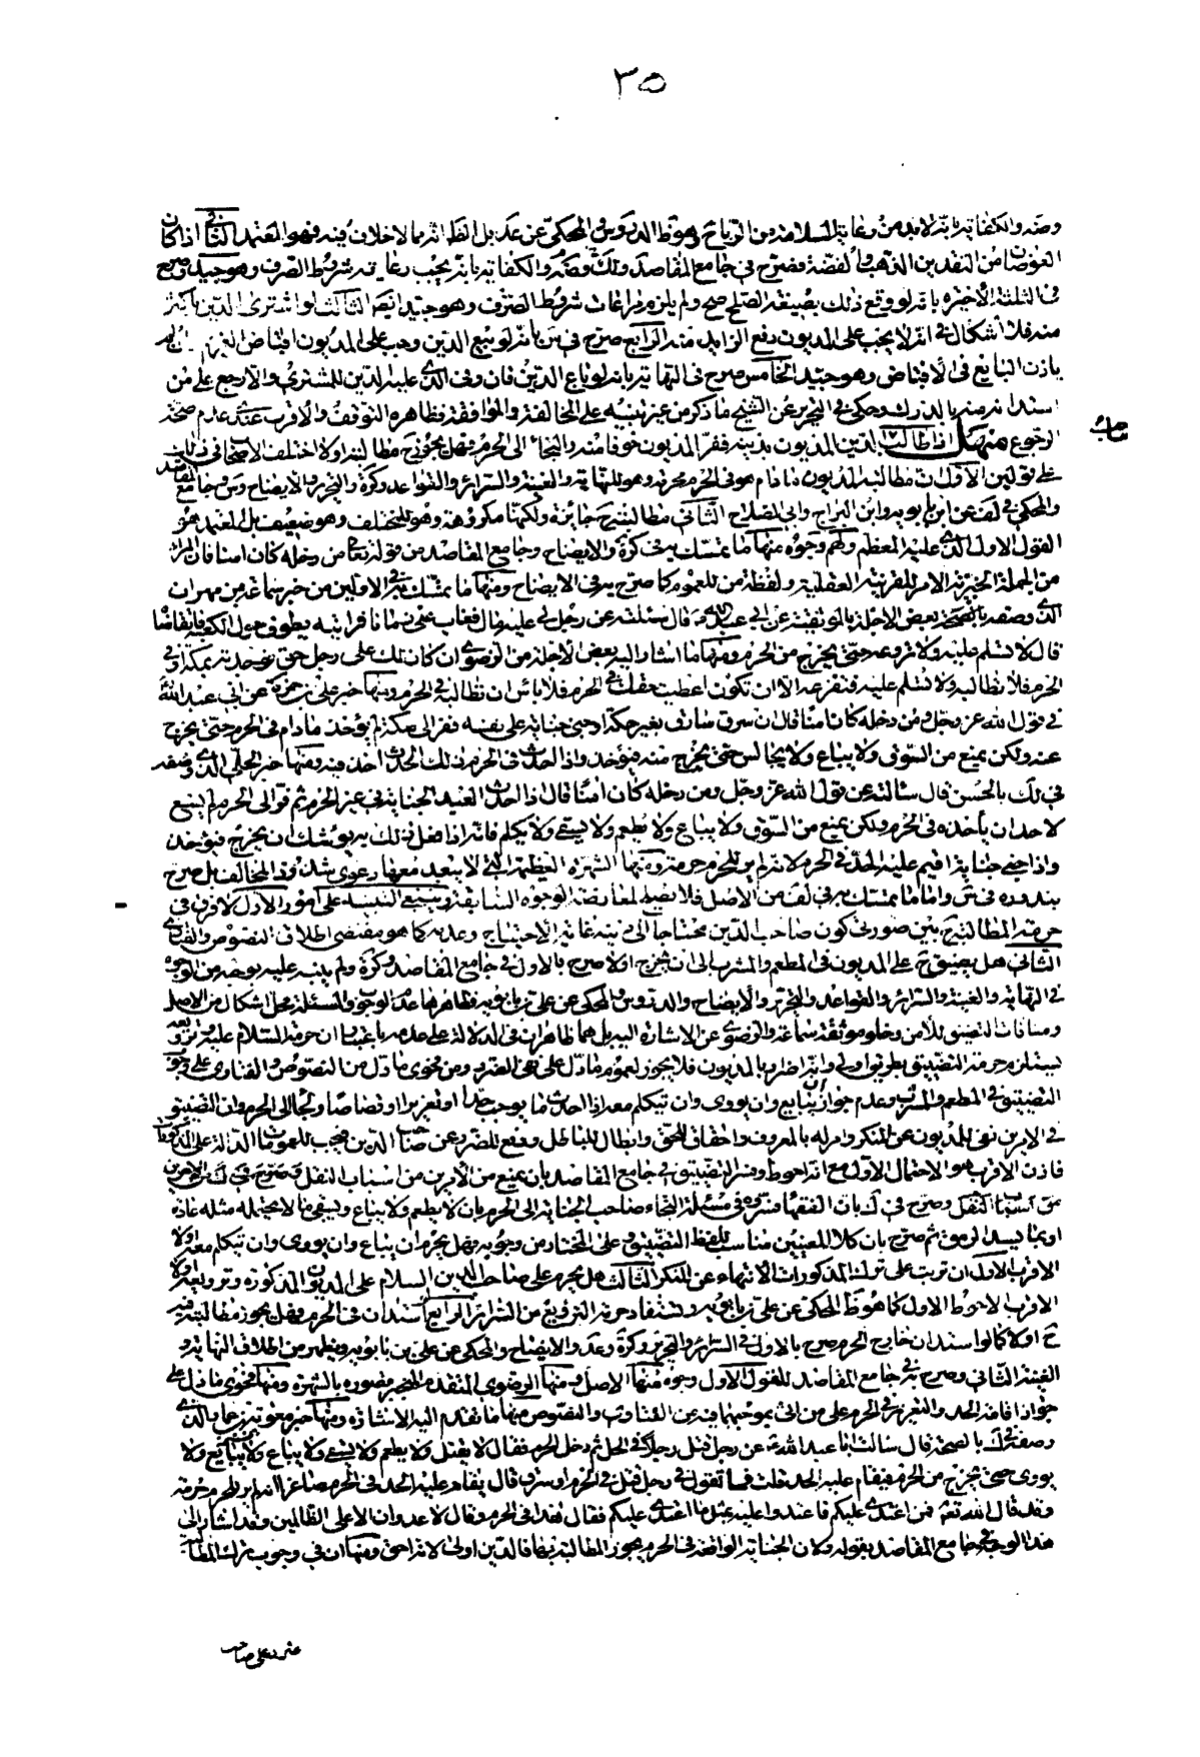 ٣٥
وضه والكفاية بانه لابد من رعاية السلامة من الربا وهو ظ الدروس والمحكى عن عد بل الظ انه مما لا خلاف فيه فهو المعتمد الثانى اذا كان
العوضان من النقدين الذهب والفضة فصرح فى جامع المقاصد ولك وضه والكفاية بانه يجب رعاية شروط الصرف وهو جيد وصرح
فى الثلثة الأخيرة بانه لو وقع ذلك بصيغة الصلح صح ولم يلزم مراعات شروط الصرف وهو جيد ايضا الثالث لو اشترى الدين باقل
منه فلا اشكال فى انه لا يجب على المديون دفع الزايد منه الرابع صرح فى س بانه لو بيع الدين وجب على المديون اقباض الغريم
باذن البايع فى الاقباض وهو جيد الخامس صرح فى النهاية بانه لو باع الدين فان وفى الذى عليه الدين للمشترى والا رجع على من
اشتراه منه بالدرك وحكى فى التحرير عن الشيخ ما ذكر من غير تنبيه على المخالفة والموافقة فظاهره التوقف والاقرب عندى عدم صحة
الرجوع منهل اذا طالب صاحب الدين المديون بدينه ففر المديون خوفا منه والتجاء الى الحرم فهل يجوز ح مطالبته او لا اختلف الاصحاب فى ذلك
على قولين الاول ان مطالبة المديون ما دام هو فى الحرم محرمة وهو للنهاية والغنية والسرائر والقواعد وكرة والتحرير والايضاح وس وجامع المقاصد
والمحكى فى لف عن ابن بابويه وابن البراج وابى الصلاح الثانى مطالبته ح جائزة ولكنها مكروهة وهو للمختلف وهو ضعيف بل المعتمد هو
القول الاول الذى عليه المعظم ولهم وجوه منها ما تمسك به فى كرة والايضاح وجامع المقاصد من قوله تعالى من دخله كان امنا فان المراد
من الجملة الخبرية الامر للقرينة العقلية ولفظة من للعموم كما صرح به فى الايضاح ومنها ما تمسك به فى الاولين من خبر سماعة بن مهران
الذى وصفه بالصحة بعض الاجلة بالموثقية عن ابى عبد الله ع قال سئلته عن رجل لى عليه مال فغاب عنى زمانا فرايته يطوف حول الكعبة فاتقاضاه
قال لا تسلم عليه ولا تروعه حتى يخرج من الحرم ومنها ما اشار اليه بعض الاجلة من الرضوى ان كان لك على رجل حق فوجدته بمكة او فى
الحرم فلا تطالبه ولا تسلم عليه فتفزعه الا ان تكون اعطيت حقك فى الحرم فلا باس ان تطالبه فى الحرم ومنها خبر على بن حمزة عن ابى عبد الله ع
فى قول الله عز وجل ومن دخله كان امنا قال ان سرق سارق بغير مكة او جنى جناية على نفسه ففر الى مكة لم يؤخذ ما دام فى الحرم حتى يخرج
عنه ولكن يمنع من السوق ولا يبايع ولا يجالس حتى يخرج منه فيؤخذ واذا احدث فى الحرم ذلك الحدث اخذ فيه ومنها خبر الحلبى الذى وصفه
فى لك بالحسن قال سالته عن قول الله عز وجل ومن دخله كان امنا قال اذا احدث العبد الجناية فى غير الحرم ثم فر الى الحرم لم ينبغ
لاحد ان ياخذه فى الحرم ولكن يمنع من السوق ولا يبايع ولا يطعم ولا يسقى ولا يكلم فانه اذا فعل ذلك به يوشك ان يخرج فيؤخذ
واذا جنى جناية اقيم عليه الحد فى الحرم لانه لم ير للحرم حرمة ومنها الشهرة العظيمة التى لا يبعد معها دعوى شذوذ المخالف بل صرح
بندوره فى س واما ما تمسك به فى لف من الاصل فلا يصلح لمعارضة الوجوه السابقة وينبغى التنبيه على امور الاول لا فرق فى
حرمة المطالبة ح بين صورتى كون صاحب الدين محتاجا الى دينه غاية الاحتياج وعدمه كما هو مقتضى اطلاق النصوص والفتاوى
الثانى هل يضيق ح على المديون فى المطعم والمشرب الى ان يخرج او لا صرح بالاول فى جامع المقاصد وكرة ولم ينبه عليه بوجه من الوجوه
فى النهاية والغنية والسرائر والقواعد والتحرير والايضاح والدروس والمحكى عن على بن بابويه فظاهرها عدم الوجوب والمسئلة محل اشكال من الاصل
ومنافات التضيق للأمن وخلو موثقة سماعة والرضوى عن الاشارة اليه بل هما ظاهران فى الدلالة على عدمه باعتبار ان حرمة السلام عليه وترويعه
يستلزم حرمة التضييق بطريق اولى وانه اضرار بالمديون فلا يجوز لعموم ما دل على نفى الضرر ومن فحوى ما دل من النصوص والفتاوى على وجوب
التضييق فى المطعم والمشرب وعدم جواز ان يبايع وان يؤوى وان يتكلم معه اذا احدث ما يوجب حدا او تعزيرا او قصاصا ولجا الى الحرم وان التضييق
فى الامرين نهى للمديون عن المنكر وامر له بالمعروف واحقاق للحق وابطال للباطل ودفع للضرر عن صاحب الدين فيجب للعمومات الدالة على المذكورات
فاذن الاقرب هو الاحتمال الاول مع انه احوط وفسر التضييق فى جامع المقاصد بان يمنع من الامرين من اسباب النقل وصرح فى لك
من اسباب النقل وصرح فى لك بان الفقهاء فسروه فى مسئلة التجاء صاحب الجناية الى الحرم بان لا يطعم ولا يباع ويسقى ما لا يحتمله مثله عادة
او بما يسد الرمق ثم صرح بان كلا المعنيين مناسب للفظ التضييق وعلى المختار من وجوبه فهل يحرم ان يباع وان يؤوى وان يتكلم معه او لا
الاقرب الاول ان ترتب على ترك المذكورات الانتهاء عن المنكر الثالث هل يحرم على صاحب الدين السلام على المديون المذكور وترويعه او لا
الاقرب الاحوط الاول كما هو ظ المحكى عن على بن بابويه ويستفاد حرمة الترويع من السرائر الرابع اذا استدان فى الحرم فهل يجوز مطالبته فيه
ح او لا كما لو استدان خارج الحرم صرح بالاول فى السرائر والتحرير وكرة وعد والايضاح والمحكى عن على بن بابويه ويظهر من اطلاق النهاية و
الغنية الثانى وصرح به فى جامع المقاصد للقول الاول وجوه منها الاصل ومنها الرضوى المتقدم المنجبر قصوره بالشهرة ومنها فحوى ما دل على
جواز اقامة الحد والتعزير فى الحرم على من اتى بموجبهما فيه من الفتاوى والنصوص منها ما تقدم اليه الاشارة ومنها خبر معوية بن عمار الذى
وصفه فى لك بالصحة قال سالت ابا عبد الله ع عن رجل قتل رجلا فى الحل ثم دخل الحرم فقال لا يقتل ولا يطعم ولا يسقى ولا يباع ولا يبايع ولا
يؤوى حتى يخرج من الحرم فيقام عليه الحد قلت فما تقول فى رجل قتل فى الحرم او سرق قال يقام عليه الحد فى الحرم صاغرا انه لم ير للحرم حرمة
وقد قال الله تعالى فمن اعتدى عليكم فاعتدوا عليه بمثل ما اعتدى عليكم فقال هذا فى الحرم وقال لا عدوان الا على الظالمين وقد اشار الى
هذا الوجه فى جامع المقاصد بقوله ولان الجناية الواقعة فى الحرم يجوز المطالبة بها فالدين اولى لانه احق ومنها ان فى وجوب ترك المطالبة